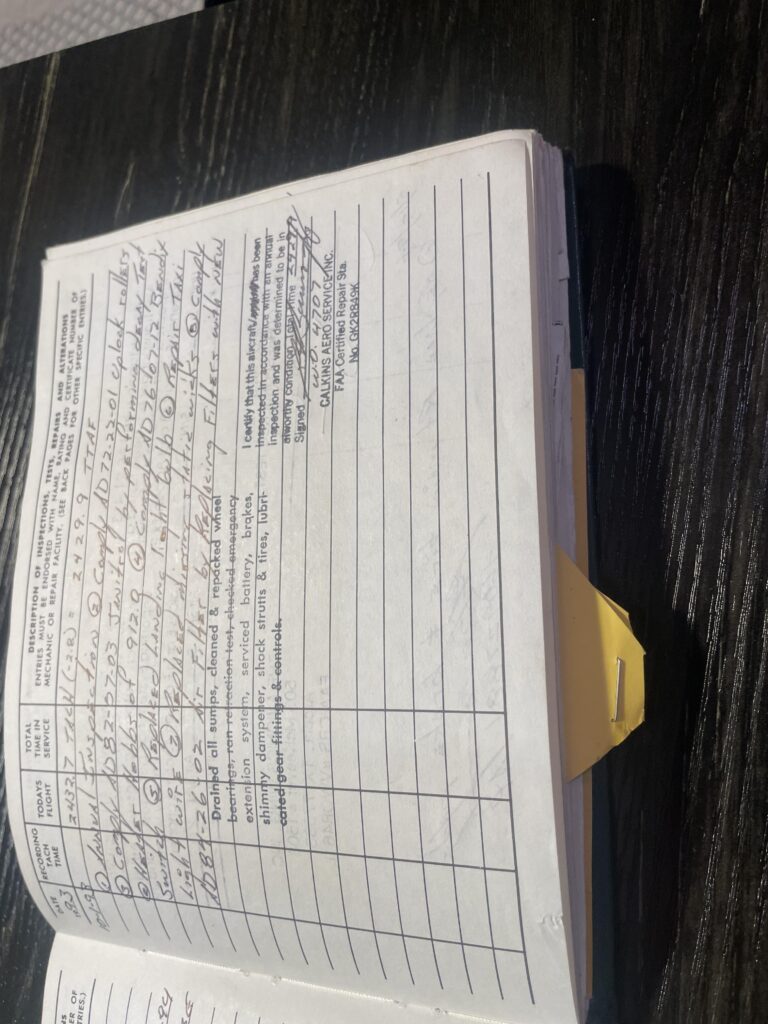 DATE
1993
RECORDING
TACH
TIME
TODAYS
FLIGHT
TOTAL
TIME IN
SERVICE
DESCRIPTION OF INSPECTIONS, TESTS, REPAIRS AND ALTERATIONS
ENTRIES MUST BE ENDORSED WITH NAME, RATING AND CERTIFICATE NUMBER OF
MECHANIC OR REPAIR FACILITY. (SEE BACK PAGES FOR OTHER SPECIFIC ENTRIES.)
2432.7 TACH (-2.8) = 2429.9 TTAF
① Annual Inspection ② Comply AD 72-22-01 uplock rollers
③ Comply AD 82-07-03 Janitrol by performing decay Test
@ Heater Hobbs of 912.9 ④ Comply AD 76-07-12 Bendix
Switch ⑤ Replaced Landing light bulb ⑥ Repair Taxi
Light wire ⑦ Replaced missing static wicks ⑧ Comply
AD 84-26-02 Air Filter by Replacing Filters with NEW
Drained all sumps, cleaned & repacked wheel
bearings, ran retraction test, checked emergency
extension system, serviced battery, brakes,
shimmy dampener, shock strutts & tires, lubri-
cated gear fittings & controls.
I certify that this aircraft/ has been
inspected in accordance with an annual
inspection and was determined to be in
airworthy condition. Total time 2429.9
Signed
W.O. 4707
CALKINS AERO SERVICE INC.
FAA Certified Repair Sta.
No. GK2R849K
OF
TRIES.)